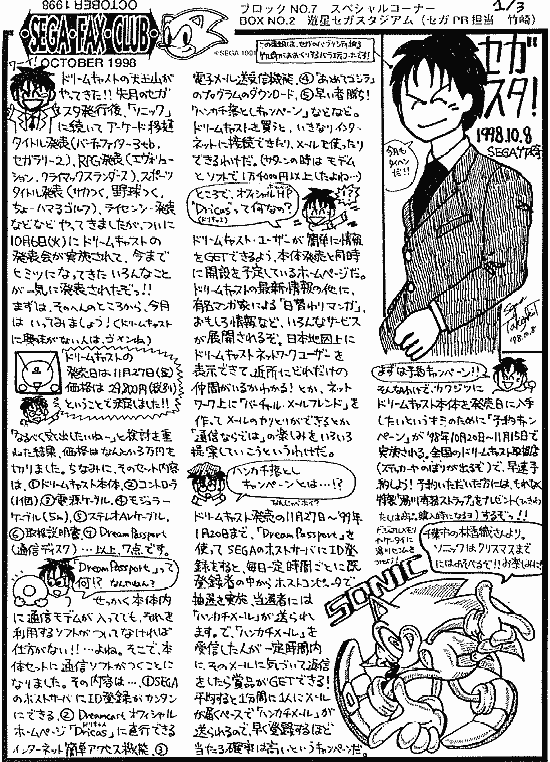 OCTOBER 1998
・SEGA・FAX・CLUB・
OCTOBER 1998
ブロックNO.7 スペシャルコーナー
1/3
BOX NO.2 遊星セガスタジアム(セガPR担当 竹崎)
©SEGA 1998
セガスタ!
1998.10.8
SEGA竹崎
ドリームキャストの火土山が
やってきた!! 先月のセガ
スタ発行後、「ソニック」
に続いて アーケード移植
タイトル発表(バーチャファイター3tb、
セガラリー2)、RPG発表(エヴォリュー
ション、クライマックスランダース)、スポーツ
タイトル発表(サカつく、野球つく、
ちょーハマるゴルフ)、ライセンシー発表
などなど やってきましたが、ついに
10月6日(火)にドリームキャストの
発表会が実施されて、今まで
ヒミツになってきた いろんなこと
が一気に発表されたぞっ!!
まずは、そのへんのところから、今月
は いってみましょう!(ドリームキャスト
に興味がない人は、ゴメンね)
ドリームキャストの
発売日は11月27日(金)
価格は 29,800円(税別)
ということで決定しました!!
「なるべく安く出したいねー」と検討を重
ねた結果、価格はなんとか3万円を
切りました。ちなみに、そのセット内容
は、①ドリームキャスト本体、②コントローラ
(1個)、③電源ケーブル、④モジュラー
ケーブル(5m)、⑤ステレオAVケーブル、
⑥取扱説明書、⑦Dream Passport
(通信ディスク) …以上、7点です。
「Dream Passport」って
何!? なんやねん?
せっかく本体内
に通信モデムが入ってても、それを
利用するソフトがついてなければ
仕方がない!!…よね。そこで、本
体セットに通信ソフトがつくことに
なりました。その内容は…、①SEGA
のホストサーバにID登録がカンタン
にできる、②Dreamcast オフィシャル
ホームページ「Dricas」に直行できる
インターネット簡単アクセス機能、③
電子メール送受信機能、④「あつめてゴジラ」
のプログラムのダウンロード、⑤早い者勝ち!
「ハンカチ落としキャンペーン」などなど。
ドリームキャストを買うと、いきなりインター
ネットに接続できたり、メールを使ったり
できるわけだ。(サターンの時は モデム
とソフトで1万4000円以上したよね…)
ところで、オフィシャルHP
「Dricas」って何なの?
ドリームキャスト・ユーザーが簡単に情報
をGETできるよう、本体発売と同時
に開設を予定しているホームページだ。
ドリームキャストの最新情報の他に、
有名マンガ家による「日替わりマンガ」、
おもしろ情報など、いろんなサービス
が展開されるぞ。日本地図上に
ドリームキャストネットワークユーザーを
表示できて、近所にどれだけの
仲間がいるかわかる!とか、ネット
ワーク上に「バーチャル・メールフレンド」を
作ってメールのやりとりができるとか
「通信ならでは」の楽しみをいろいろ
提案していこうというわけだ。
ハンカチ落とし
キャンペーンとは…!?
ドリームキャスト発売の11月27日〜'99年
1月20日まで、「Dream Passport」を
使ってSEGAのホストサーバにID登
録すると、毎日一定時間ごとに既
登録者の中からホストコンピュータで
抽選を実施。当選者には
「ハンカチメール」が送られ
ます。で、「ハンカチメール」を
受信した人が一定時間内
に、そのメールに気づいて返信
をしたら賞品がGETできる!
平均すると1分間に1人にメール
が届くペースで「ハンカチメール」が
送られるので、早く登録するほど
当たる確率は高いというキャンペーンだ。
まずは予約キャンペーン!!
そんなわけで、カクジツに
ドリームキャスト本体を発売日に入手
したいというキミのために「予約キャン
ペーン」が'98年10月20日〜11月15日で
実施される。全国のドリームキャスト取扱店
(ステッカーやのぼりが出るぞ)で、早速予
約しよう! 予約いただいた方には、もれなく
特製「湯川専務ストラップ」をプレゼント
するぞっ!!
千葉市の林吉織さんより。
ソニックはクリスマスまで
にはあそべるぞ!! お楽しみに!
SONIC